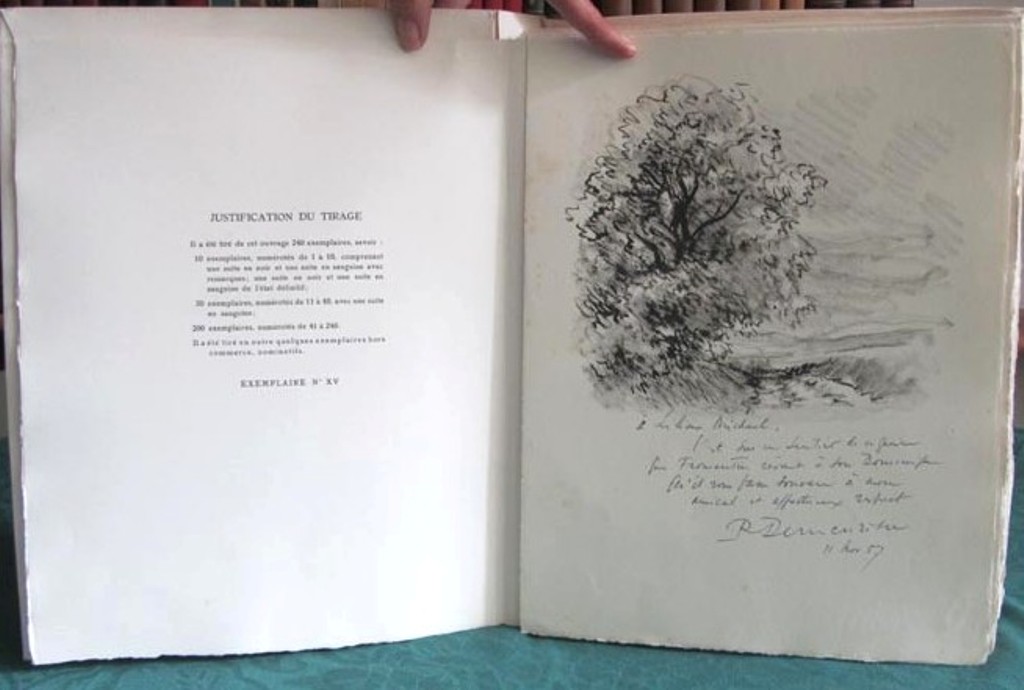 JUSTIFICATION DU TIRAGE
Il a été tiré de cet ouvrage 240 exemplaires, savoir :
10 exemplaires, numérotés de 1 à 10, comprenant
une suite en noir et une suite en sanguine avec
remarques; une suite en noir et une suite en
sanguine de l'état définitif;
30 exemplaires, numérotés de 11 à 40, avec une suite
en sanguine;
200 exemplaires, numérotés de 41 à 240.
Il a été tiré en outre quelques exemplaires hors
commerce, nominatifs.
EXEMPLAIRE N° XV
à
sur un sentier
Fromentin à son Dominique
qu'il vous à mon
amical et affectueux respect
11 Nov 57